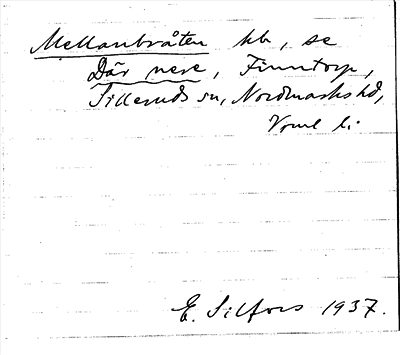 Mellanbråten hb, se
Där nere, Finntorp,
Silleruds sn, Nordmarks hd,
Vrml li
E. Silfors 1937.